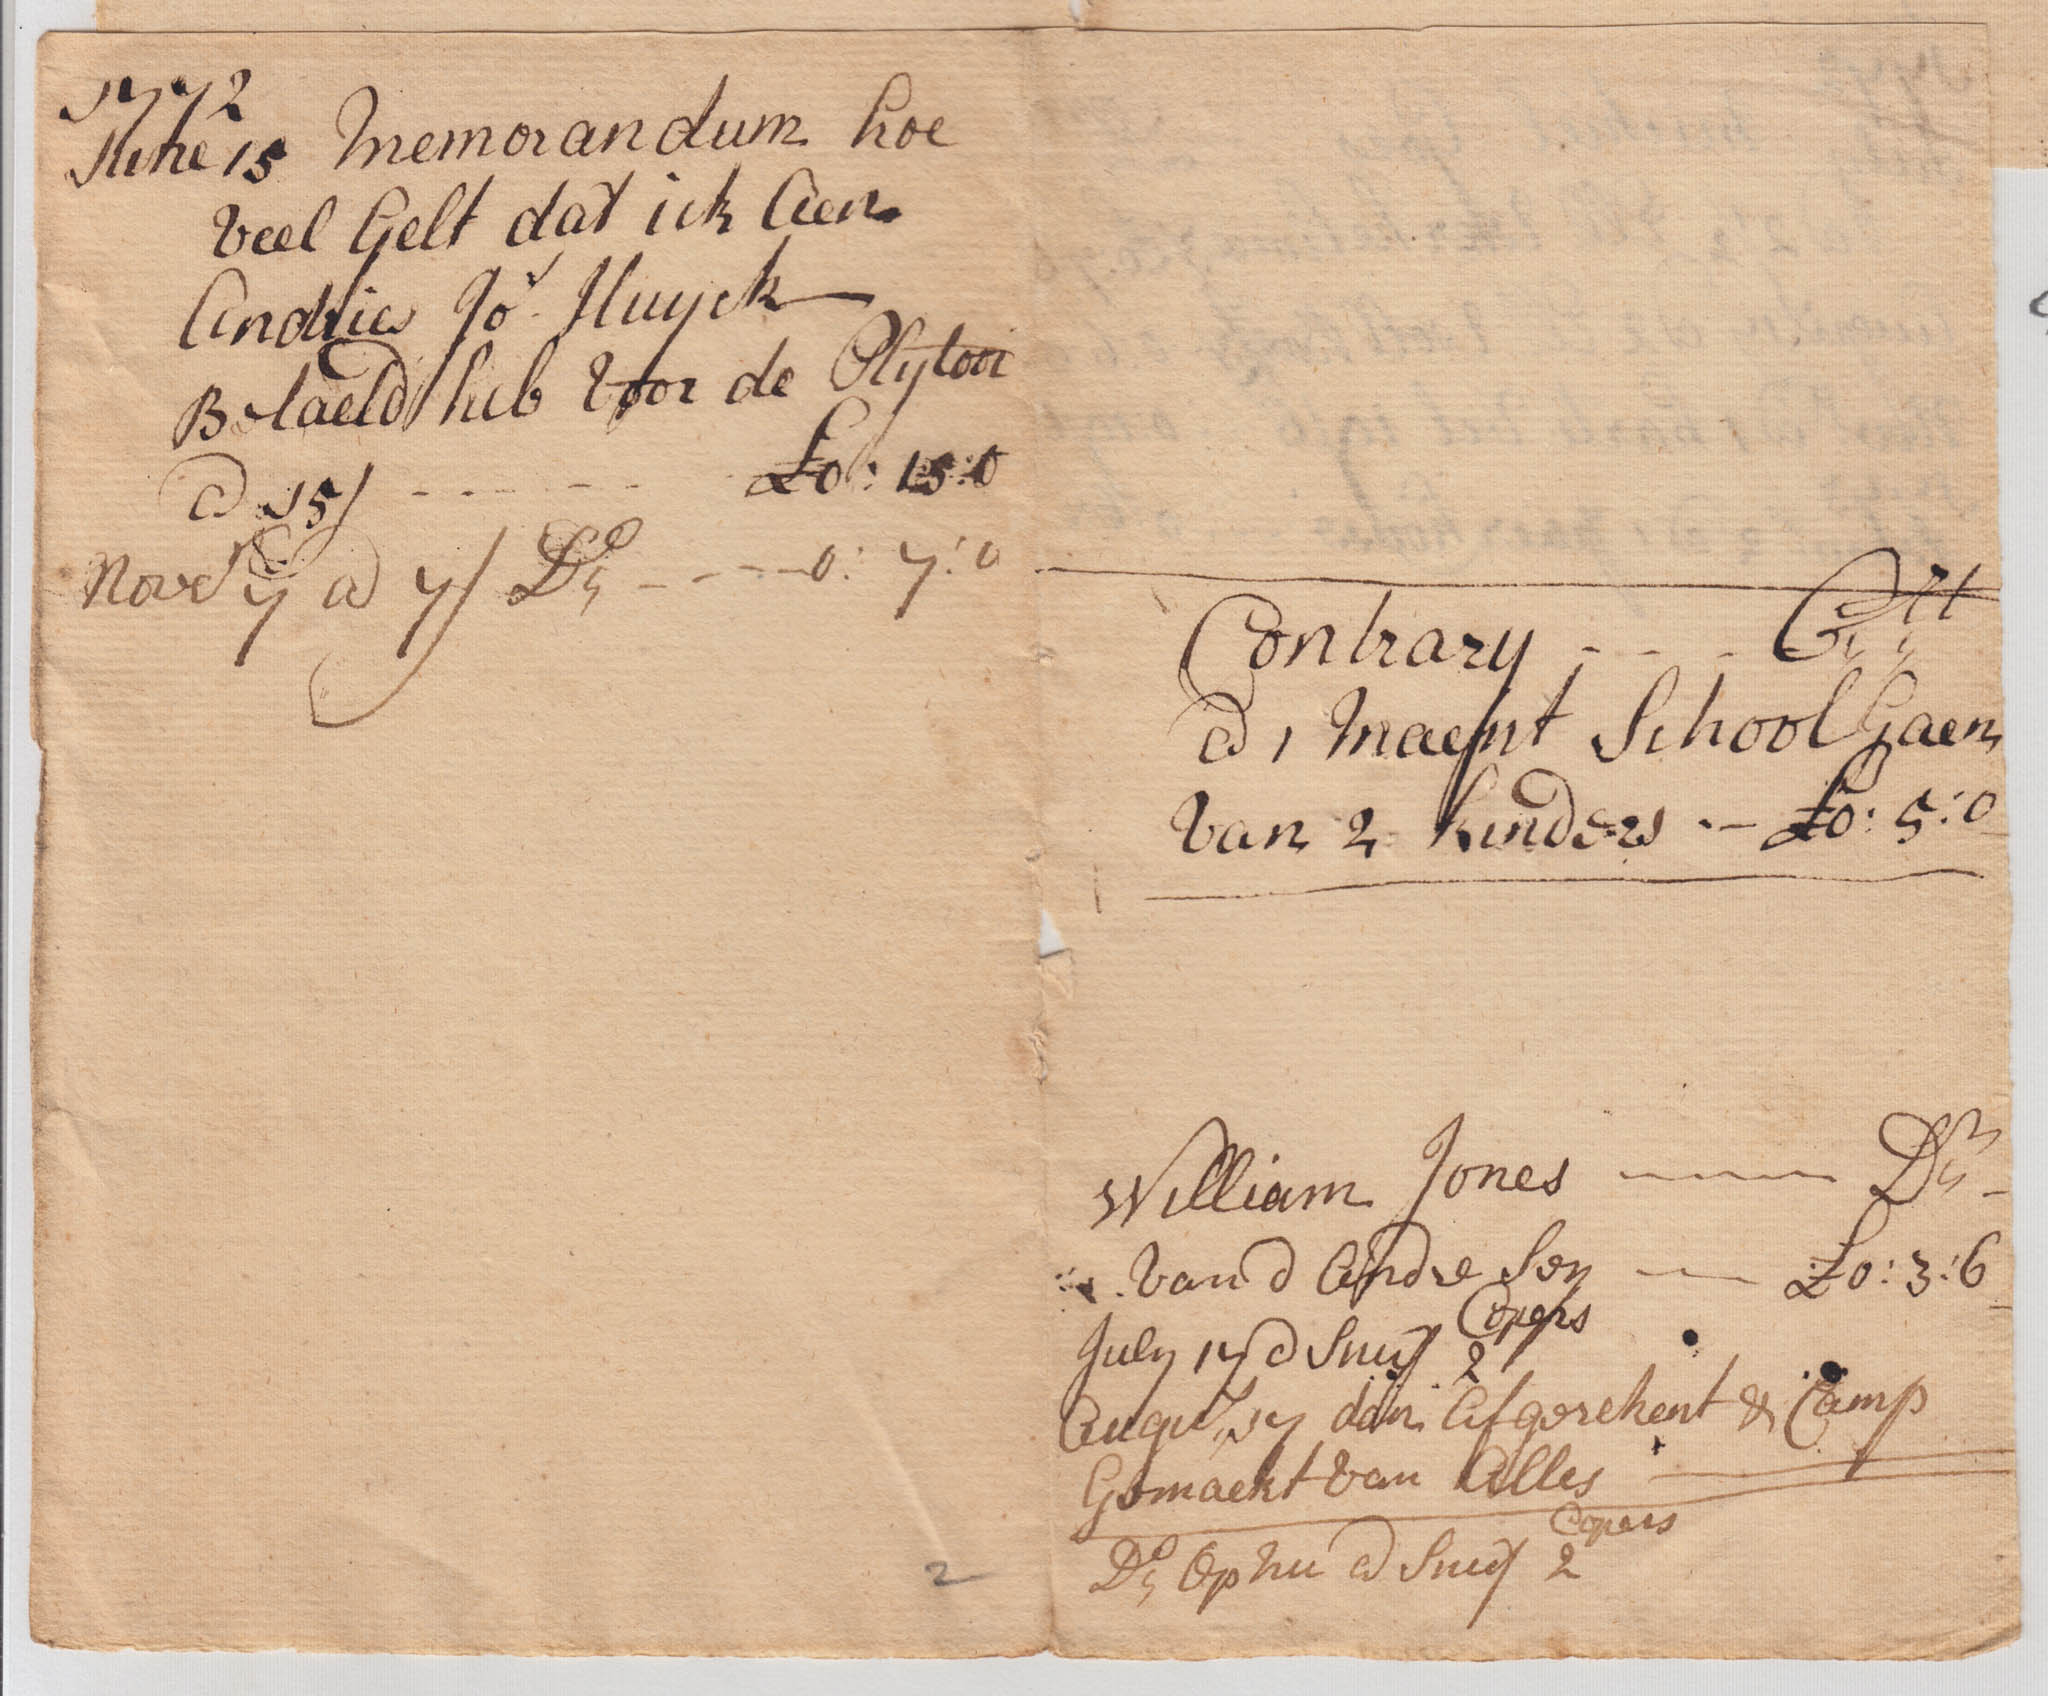 1772
June 15 Memorandum hoe
veel Gelt dat ick Aen
Andries Jo: Huyck
Betaeld heb voor de Plytooi
@ 15/ - - - - - £0: 15:0
Novr 7 @ 7/ Do - - - - 0: 7:0
Contrary - - - Crt
@ 1 Maent School Gaen
Van 2 Kinders -- £0: 5:0
William Jones ---- Dr
van d Andre Sey -- £0:3:6
Copers
July 17 @ Snuf 2
Augut 17 dan Afgerekent & Camp
Gemaekt van Alles
Copers
Do Op nu @ Snuf 2
2